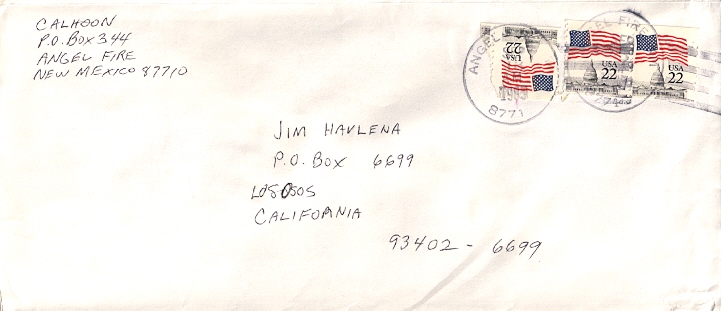 CALHOON
P.O. BOX 344
ANGEL FIRE
NEW MEXICO 87710
USA
22
USA
22
22
ANGEL
8771
EL FIRE
JIM HAVLENA
P.O. BOX 6699
LOS OSOS
CALIFORNIA
93402 - 6699